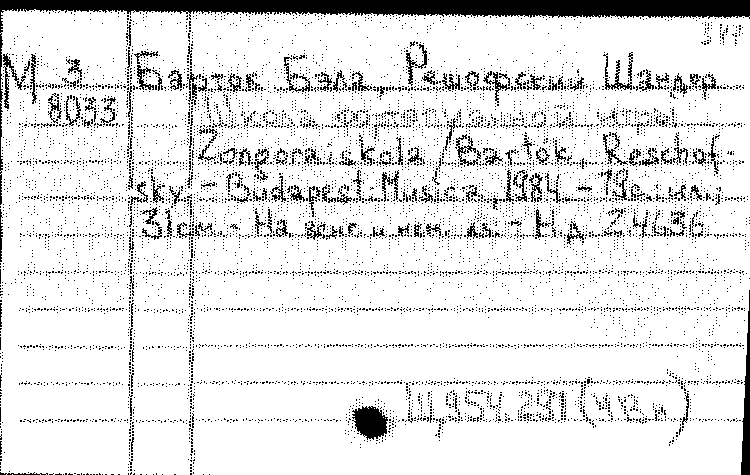 347
М 3 Барток Бэла, Решофский Шандор
8033 Школа фортепианной игры
Zongoraiskola / Bartók, Reschof-
sky. - Budapest: Musica, 1984. - 79с.: ил.;
31см. - На венг. и нем. яз. - Н.д. Z 4636
Ш,954.281 (ЧВП)